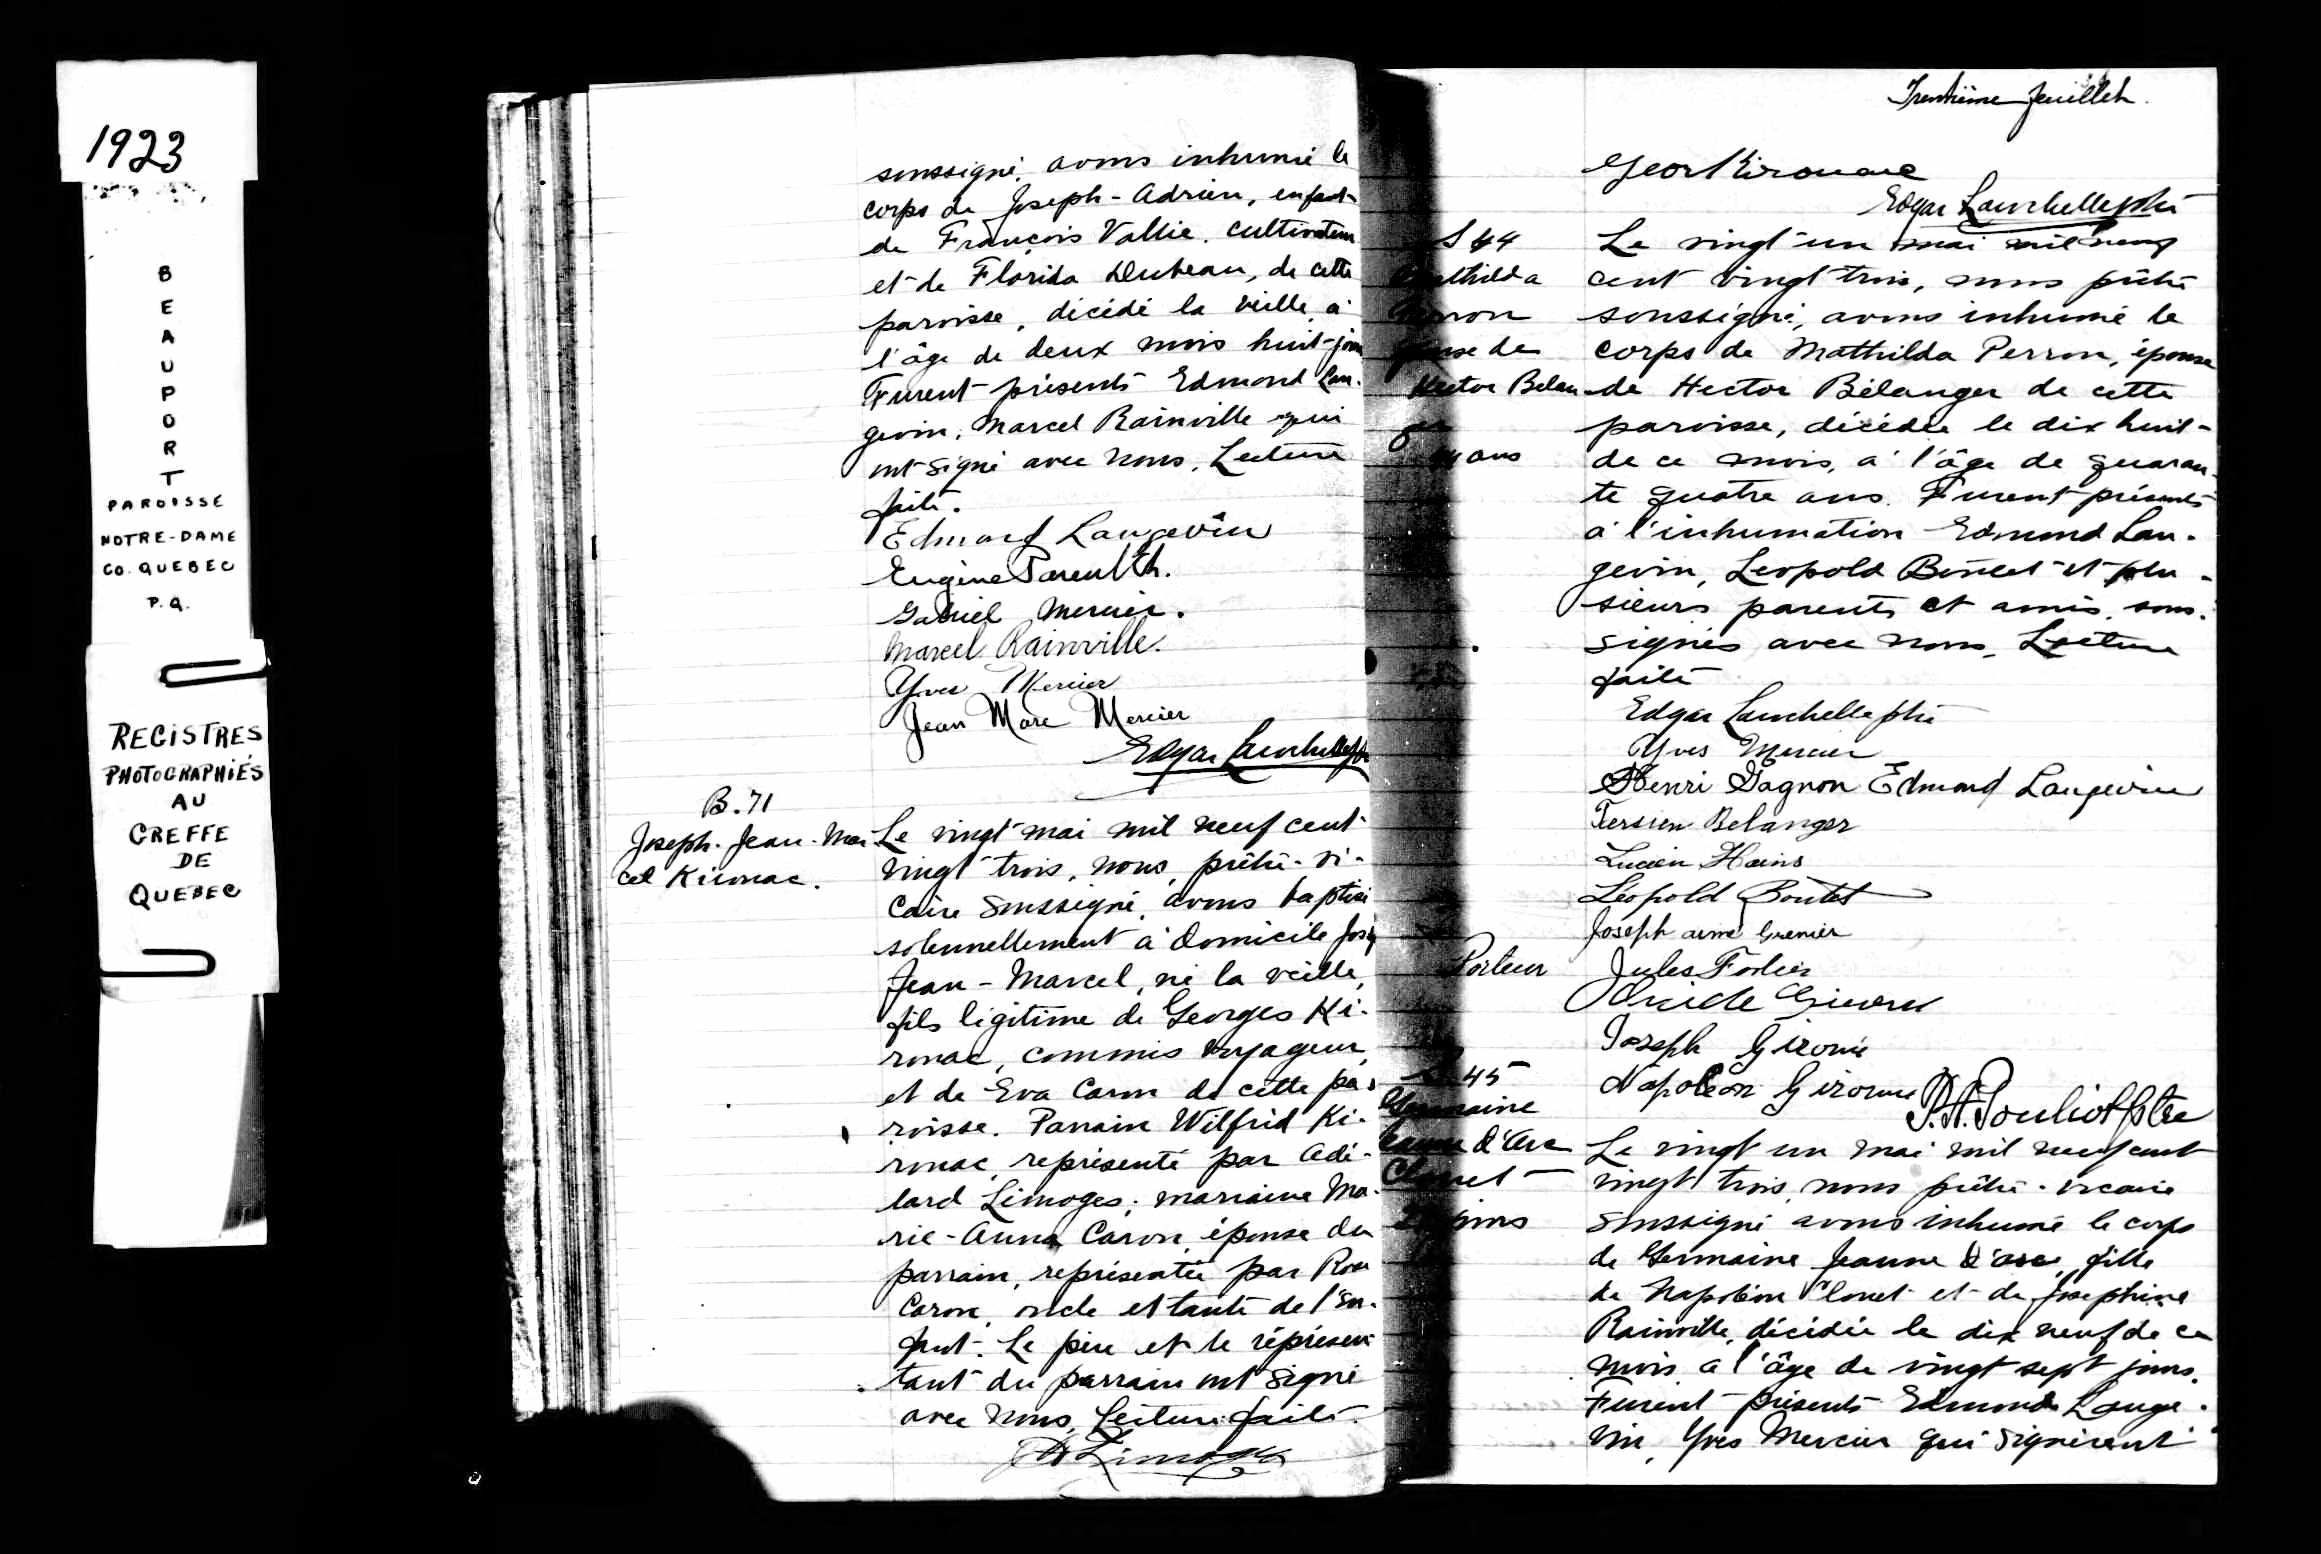 1923
BEAUPORT
PAROISSE
NOTRE-DAME
CO. QUEBEC
P.Q.
REGISTRES
PHOTOGRAPHIÉS
AU
GREFFE
DE
QUEBEC
soussigné, avons inhumé le
corps de Joseph-Adrien, enfant
de François Vallée, cultivateur
et de Florida Dubeau, de cette
paroisse, décédé la veille, à
l'âge de deux mois huit jours
Furent présents Edmond Lan-
gevin, Marcel Rainville qui
ont signé avec nous. Lecture
faite.
Edmond Langevin
Eugène Parent
Gabriel Mercier.
Marcel Rainville.
Yves Mercier
Jean Marc Mercier
Edgar Larochelle ptre
B.71
Joseph-Jean-Mar
cel Kirouac.
Le vingt mai mil neuf cent
vingt trois, nous, prêtre-vi-
caire soussigné, avons baptisé
solennellement à domicile Josep
Jean-Marcel, né la veille,
fils légitime de Georges Ki-
rouac, commis voyageur,
et de Eva Caron de cette pa-
roisse. Parrain Wilfrid Ki-
rouac, représenté par Adé-
lard Limoges; marraine Ma-
rie-Anna Caron, épouse du
parrain, représentée par Rose
Caron, oncle et tante de l'en-
fant. Le père et le représen
tant du parrain ont signé
avec nous. Lecture faite.
Limoges
Trentième feuillet.
Geo Kirouac
Edgar Larochelle ptre
S 44
Mathilda
Perron
épouse de
Hector Bélan
ger
44 ans
Le vingt-un mai mil neuf
cent vingt trois, nous prêtre
soussigné, avons inhumé le
corps de Mathilda Perron, épouse
de Hector Bélanger de cette
paroisse, décédée le dix huit
de ce mois, à l'âge de quaran-
te quatre ans. Furent présents
à l'inhumation Edmond Lan-
gevin, Léopold Boutet et plu-
sieurs parents et amis, sous-
signés avec nous. Lecture
faite
Edgar Larochelle ptre
Yves Mercier
Henri Gagnon Edmond Langevin
Tersien Belanger
Lucien Hains
Léopold Boutet
Joseph Grenier
Porteur Jules Fortier
Joseph Giroux
Napoléon Giroux
P.A. Pouliot ptre
S 45
Germaine
Jeanne d'Arc
Clouet
27 jours
Le vingt un mai mil neuf cent
vingt trois, nous prêtre-vicaire
soussigné avons inhumé le corps
de Germaine Jeanne d'arc, fille
de Napoléon Clouet et de Josephine
Rainville, décédée le dix neuf de ce
mois à l'âge de vingt sept jours.
Furent présents Edmond Lange-
vin, Yves Mercier qui signèrent